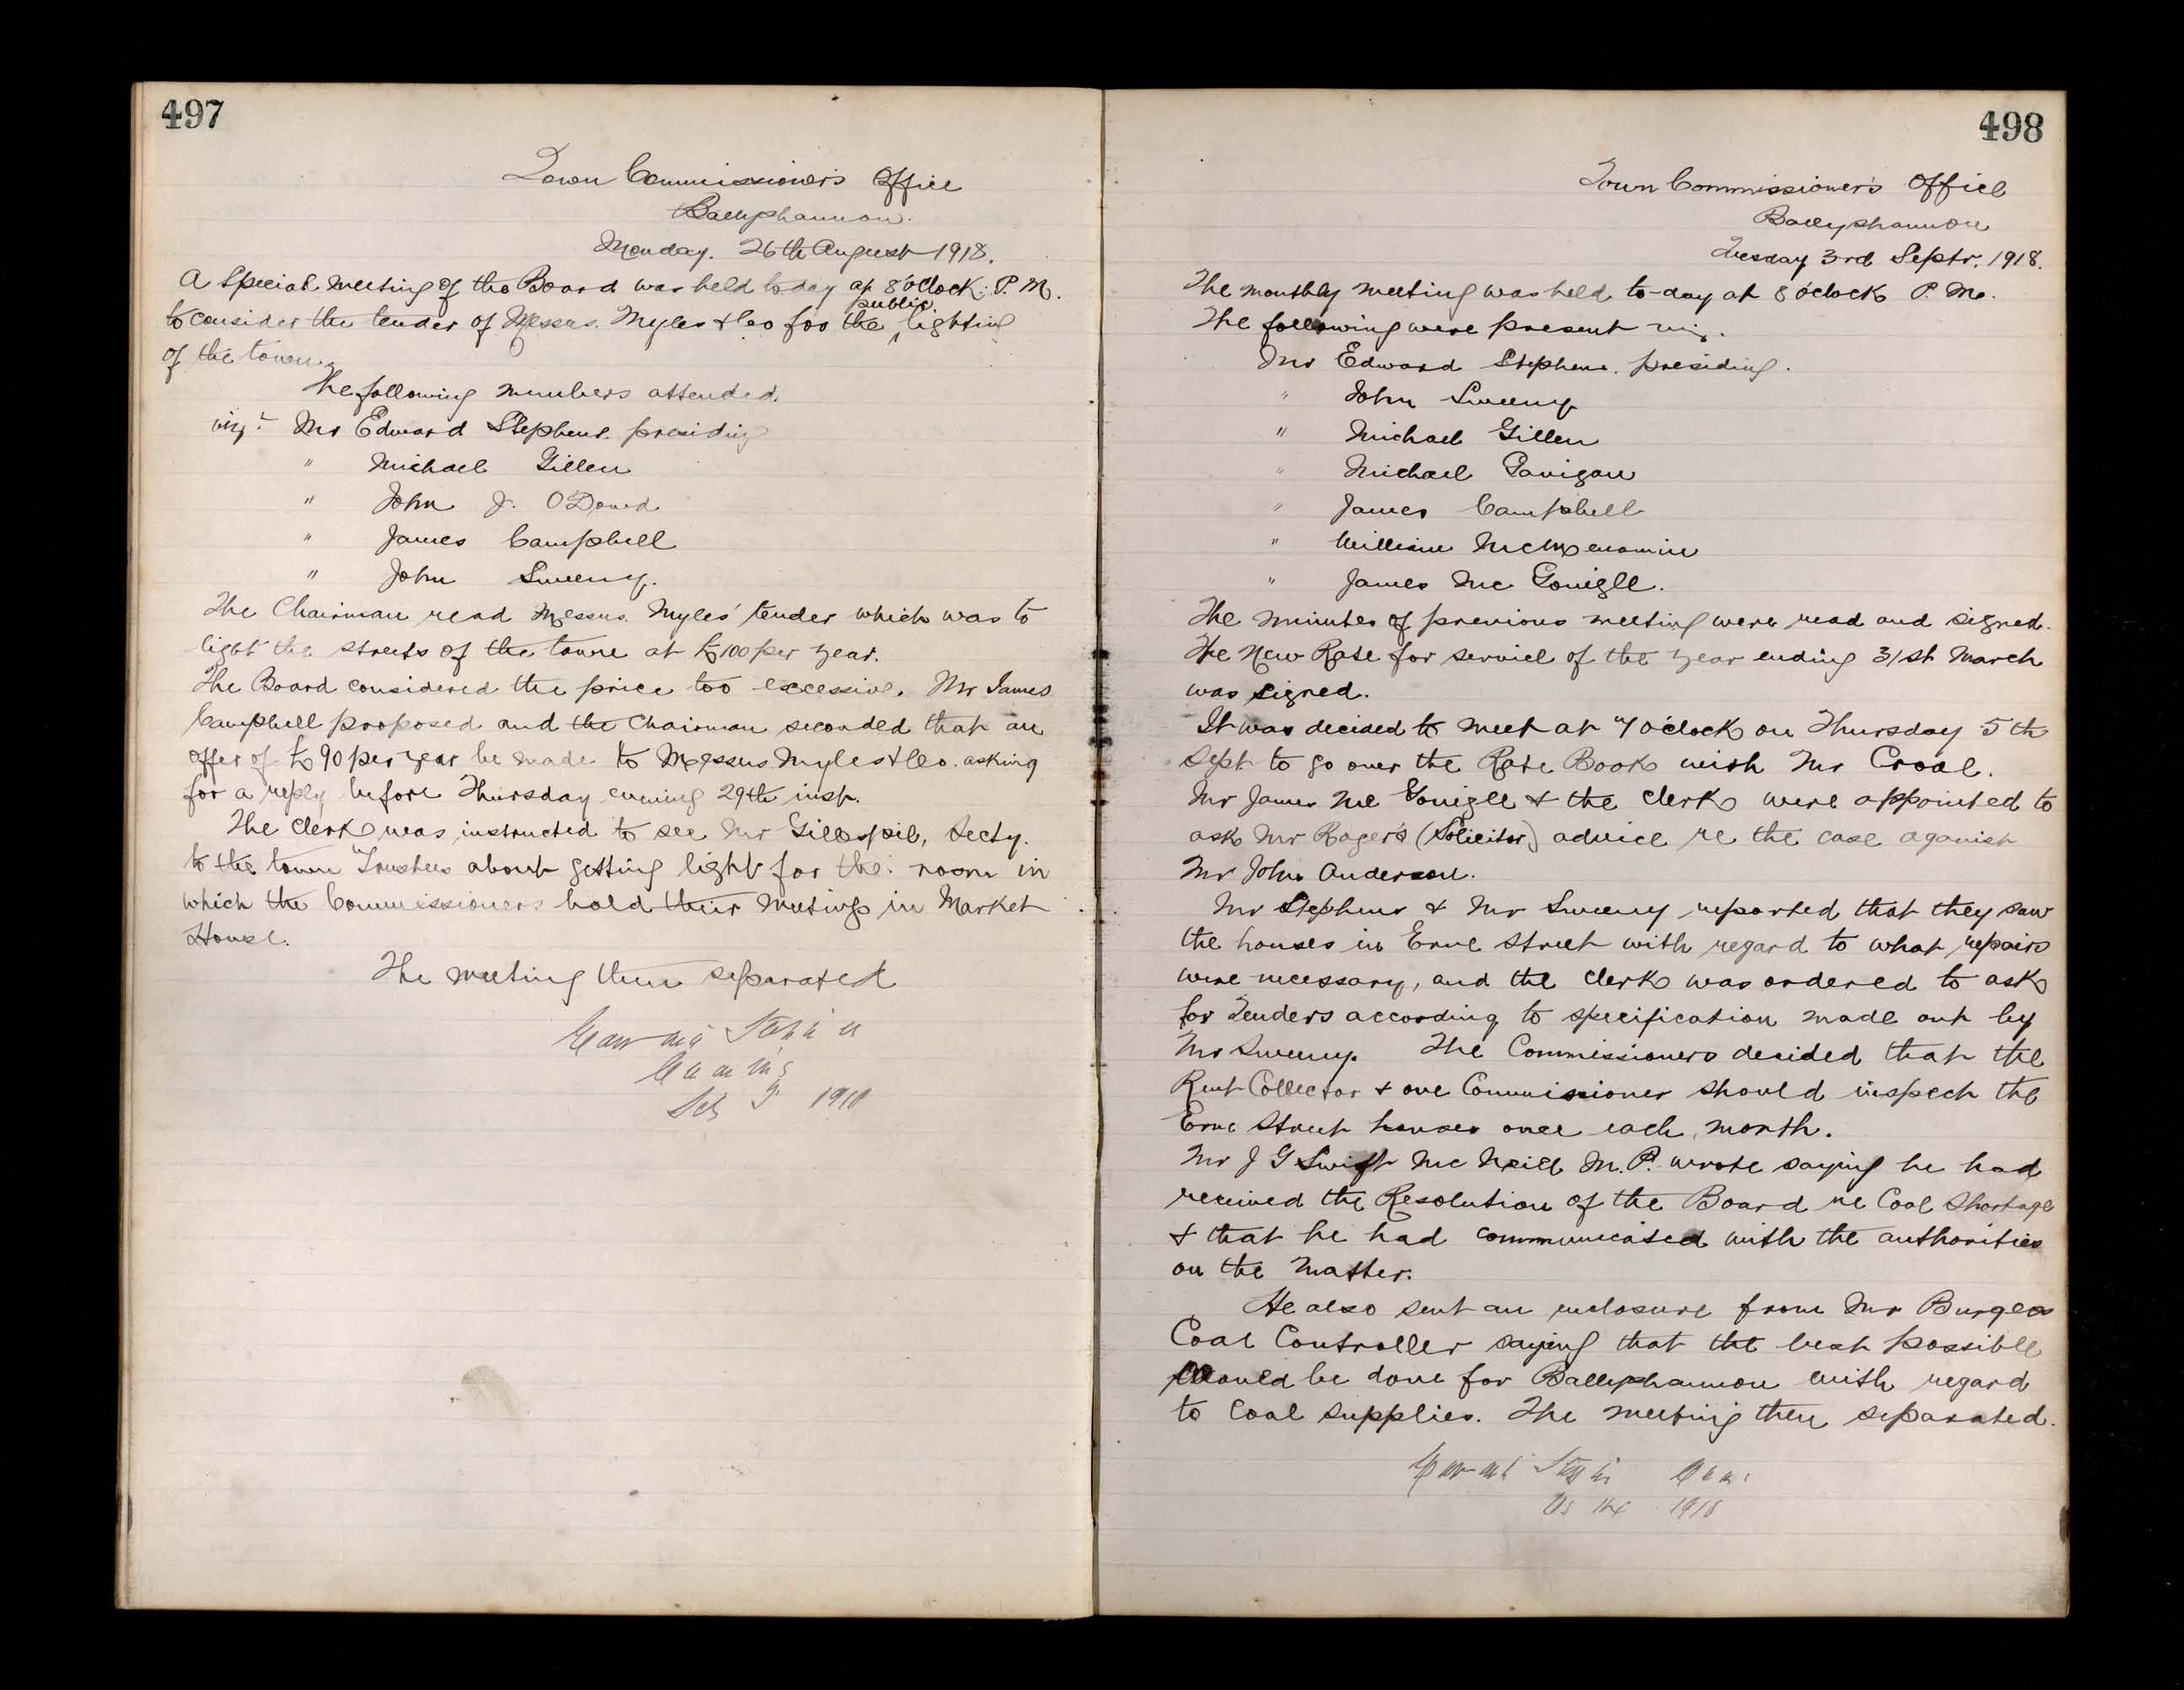 497
Town Commissioner's Office
Ballyshannon.
Monday. 26th August 1918.
A Special meeting of the Board was held to day at 8 o'Clock. P.M.
to consider the tender of Messrs. Myles & Co for the public lighting
of the town.
The following members attended.
viz:- Mr Edward Stephens. presiding
" Michael Gillen
" John J. O'Dowd
" James Campbell
" John Sweeny.
The Chairman read Messrs. Myles' tender which was to
light the streets of the town at £100 per year.
The Board considered the price too excessive. Mr James
Campbell proposed and the Chairman seconded that an
offer of £90 per year be made to Messrs Myles & Co. asking
for a reply before Thursday evening 29th inst.
The Clerk was instructed to see Mr Gillespie, Secty.
to the town Trustees about getting light for the room in
which the Commissioners hold their meetings in Market
House.
The meeting then separated
1918
498
Town Commissioner's Office
Ballyshannon
Tuesday 3rd Septr. 1918.
The monthly meeting was held to-day at 8 o'clock P.M.
The following were present viz.
Mr Edward Stephens. presiding.
" John Sweeny
" Michael Gillen
" Michael Gavigan
" James Campbell
" William McMenamin
" James Mc Gonigle.
The minutes of previous meeting were read and signed.
The New Rate for service of the year ending 31st March
was signed.
It was decided to meet at 7 o'clock on Thursday 5th
Sept to go over the Rate Book with Mr Croal.
Mr James Mc Gonigle & the Clerk were appointed to
ask Mr Roger's (Solicitor) advice re the case aganist
Mr John Anderson.
Mr Stephens & Mr Sweeny reported that they saw
the houses in Erne Street with regard to what repairs
were necessary, and the Clerk was ordered to ask
for Tenders according to specification made out by
Mr Sweeny. The Commissioners decided that the
Rent Collector & one Commissioner should inspect the
Erne Street houses once each month.
Mr J G Swift Mc Neill M.P. wrote saying he had
received the Resolution of the Board re Coal Shortage
& that he had communicated with the authorities
on the matter.
He also sent an enclosure from Mr Burgess
Coal Controller saying that the best possible
would be done for Ballyshannon with regard
to Coal supplies. The meeting then separated.
1918